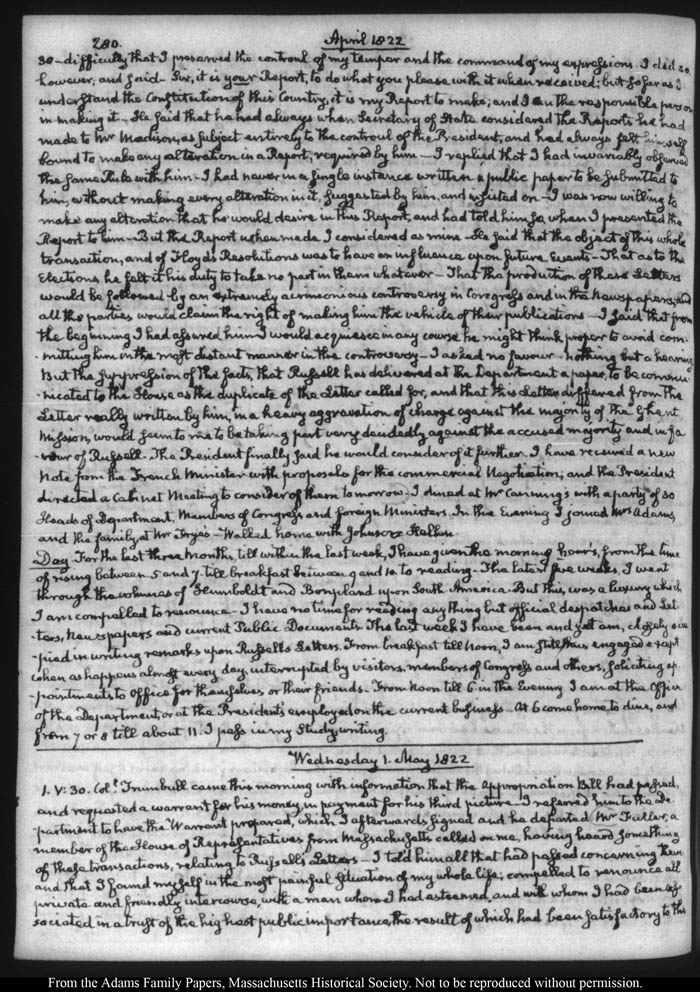 280.
April 1822
30 — difficulty that I preserved the controul of my temper and the command of my expressions. I did so
however, and said — Sir, it is your Report, to do what you please with it when received; but so far as I
understand the Constitution of this Country, it is my Report to make; and I am the responsible person
in making it — He said that he had always when Secretary of State considered the Reports he had
made to Mr Madison, as subject entirely to the controul of the President, and had always felt himself
bound to make any alteration in a Report, required by him — I replied that I had invariably observed
the same Rule with him — I had never in a single instance written a public paper to be submitted to
him, without making every alteration in it, suggested by him, and insisted on — I was now willing to
make any alteration that he would desire in this Report, and had told him so, when I presented the
Report to him — But the Report when made I considered as mine — He said that the object of this whole
transaction, and of Floyd's Resolutions was to have an influence upon future Events — That as to the
Elections, he felt it his duty to take no part in them whatever — That the production of these Letters
would be followed by an extremely acrimonious controversy in Congress and in the Newspapers, and
all the parties would claim the right of making him the vehicle of their publications — I said that from
the beginning I had assured him I would acquiesce in any course he might think proper to avoid com
-mitting him in the most distant manner in the controversy — I asked no favour — nothing but a hearing
But the suppression of the facts, that Russell has delivered at the Department a paper, to be commu
-nicated to the House as the duplicate of the Letter called for, and that this Letter differed from the
Letter really written by him, in a heavy aggravation of charge against the majority of the Ghent
Mission, would seem to me to be taking part very decidedly against the accused majority and in fa
-vour of Russell. The President finally said he would consider of it further. I have received a new
Note from the French Minister with proposals for the commercial Negotiation; and the President
directed a Cabinet Meeting to consider of them tomorrow. I dined at Mr Canning's with a party of 30
Heads of Department, Members of Congress and foreign Ministers. In the Evening I joined Mrs Adams,
and the family, at Mr Frye's — Walked home with Johnson Hellen.
Day. For the last three Months, till within the last week, I have given the morning hours, from the time
of rising between 5 and 7 till breakfast between 9 and 10 to reading — The latest five weeks, I went
through the volumes of Humboldt and Bonpland upon South-America. But this, was a luxury which
I am compelled to renounce — I have no time for reading any thing but official despatches and Let
-ters, newspapers and current Public Documents. The last week I have been and yet am, closely occu
-pied in writing remarks upon Russell's Letters. From breakfast till Noon, I am still thus engaged except
when as happens almost every day, interrupted by visitors, members of Congress and others, soliciting ap
-pointments to office for themselves or their friends. From Noon till 6 in the Evening I am at the Office
of the Department, or at the President's employed on the current business — At 6 come home to dine, and
from 7 or 8 till about 11. I pass in my Study, writing.
Wednesday 1. May 1822
1. V:30. Colt. Trumbull came this morning with information that the Appropriation Bill had passed,
and requested a warrant for his money, in payment for his third picture. I referred him to the De
-partment to have the Warrant prepared, which I afterwards signed and he departed. Mr Fuller, a
member of the House of Representatives from Massachusetts called on me, having heard something
of these transactions, relating to Russell's Letters — I told him all that had passed concerning them
and that I found myself in the most painful situation of my whole life; compelled to renounce all
private and friendly intercourse, with a man whom I had esteemed, and with whom I had been as
sociated in a trust of the highest public importance, the result of which had been satisfactory to this
From the Adams Family Papers, Massachusetts Historical Society. Not to be reproduced without permission.